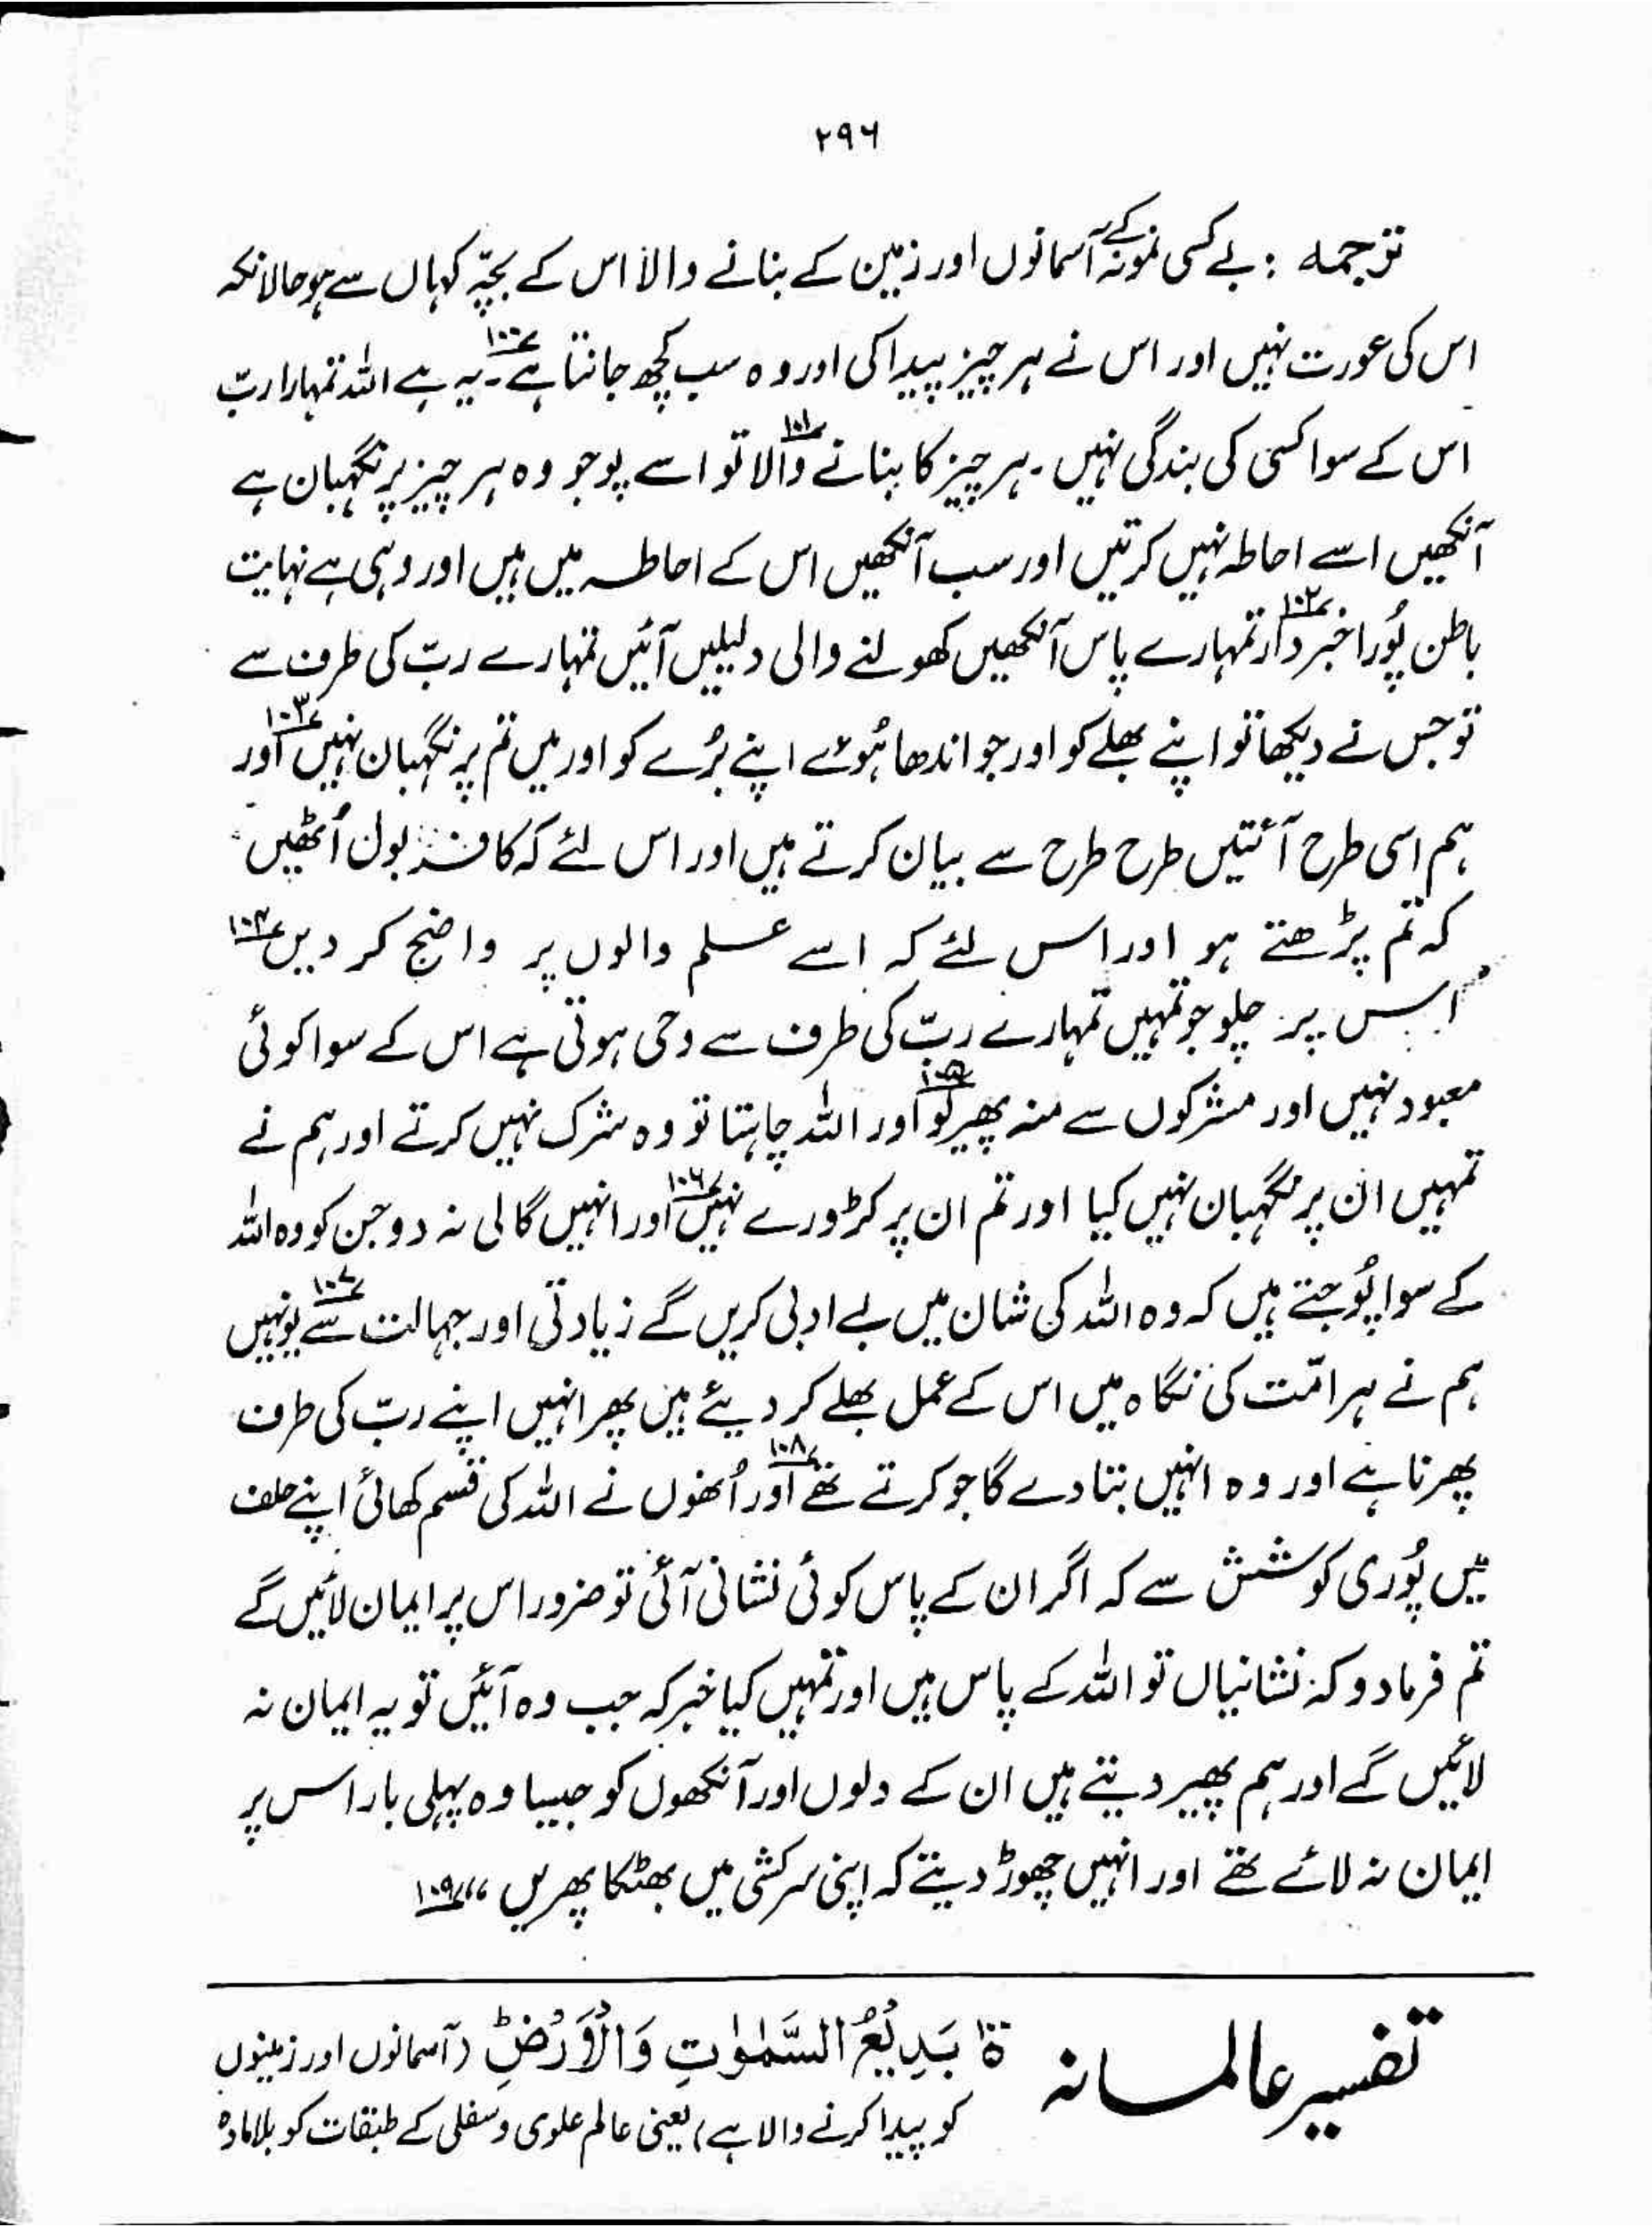 ۲۹۶
ترجمہ : بے کسی نمونہ کے آسمانوں اور زمین کے بنانے والا اس کے بچّہ کہاں سے ہو حالانکہ
اس کی عورت نہیں اور اس نے ہر چیز پیدا کی اور وہ سب کچھ جانتا ہے ۱۰۰؎۔ یہ ہے اللہ تمہارا ربّ
اس کے سوا کسی کی بندگی نہیں ۔ ہر چیز کا بنانے والا ۱۰۱؎ تو اسے پوجو وہ ہر چیز پر نگہبان ہے
آنکھیں اسے احاطہ نہیں کرتیں اور سب آنکھیں اس کے احاطہ میں ہیں اور وہی ہے نہایت
باطن پُورا خبردار ۱۰۲؎ تمہارے پاس آنکھیں کھولنے والی دلیلیں آئیں تمہارے ربّ کی طرف سے
تو جس نے دیکھا تو اپنے بھلے کو اور جو اندھا ہُوئے اپنے بُرے کو اور میں تم پر نگہبان نہیں ۱۰۳؎ اور
ہم اسی طرح آئتیں طرح طرح سے بیان کرتے ہیں اور اس لئے کہ کافر بول اُٹھیں
کہ تم پڑھتے ہو اور اس لئے کہ اسے علم والوں پر واضح کر دیں ۱۰۴؎
اُس پر چلو جو تمہیں تمہارے ربّ کی طرف سے وحی ہوتی ہے اس کے سوا کوئی
معبود نہیں اور مشرکوں سے منہ پھیر لو ۱۰۵؎ اور اللہ چاہتا تو وہ شرک نہیں کرتے اور ہم نے
تمہیں ان پر نگہبان نہیں کیا اور تم ان پر کڑوڑے نہیں ۱۰۶؎ اور انہیں گالی نہ دو جن کو وہ اللہ
کے سوا پُوجتے ہیں کہ وہ اللہ کی شان میں بے ادبی کریں گے زیادتی اور جہالت سے ۱۰۷؎ یونہیں
ہم نے ہر امّت کی نگاہ میں اس کے عمل بھلے کر دیئے ہیں پھر انہیں اپنے ربّ کی طرف
پھرنا ہے اور وہ انہیں بتا دے گا جو کرتے تھے ۱۰۸؎ اور اُنھوں نے اللہ کی قسم کھائی اپنے حلف
میں پُوری کوشش سے کہ اگر ان کے پاس کوئی نشانی آئی تو ضرور اس پر ایمان لائیں گے
تم فرما دو کہ نشانیاں تو اللہ کے پاس ہیں اور تمہیں کیا خبر کہ جب وہ آئیں تو یہ ایمان نہ
لائیں گے اور ہم پھیر دیتے ہیں ان کے دلوں اور آنکھوں کو جیسا وہ پہلی بار اس پر
ایمان نہ لائے تھے اور انہیں چھوڑ دیتے کہ اپنی سرکشی میں بھٹکا پھریں ،، ۱۰۹؎
تفسیر عالمانہ
بَدِيْعُ السَّمٰوٰتِ وَالْاَرْضِ ؕ (آسمانوں اور زمینوں
کو پیدا کرنے والا ہے) یعنی عالم علوی و سفلی کے طبقات کو بلا مادہ